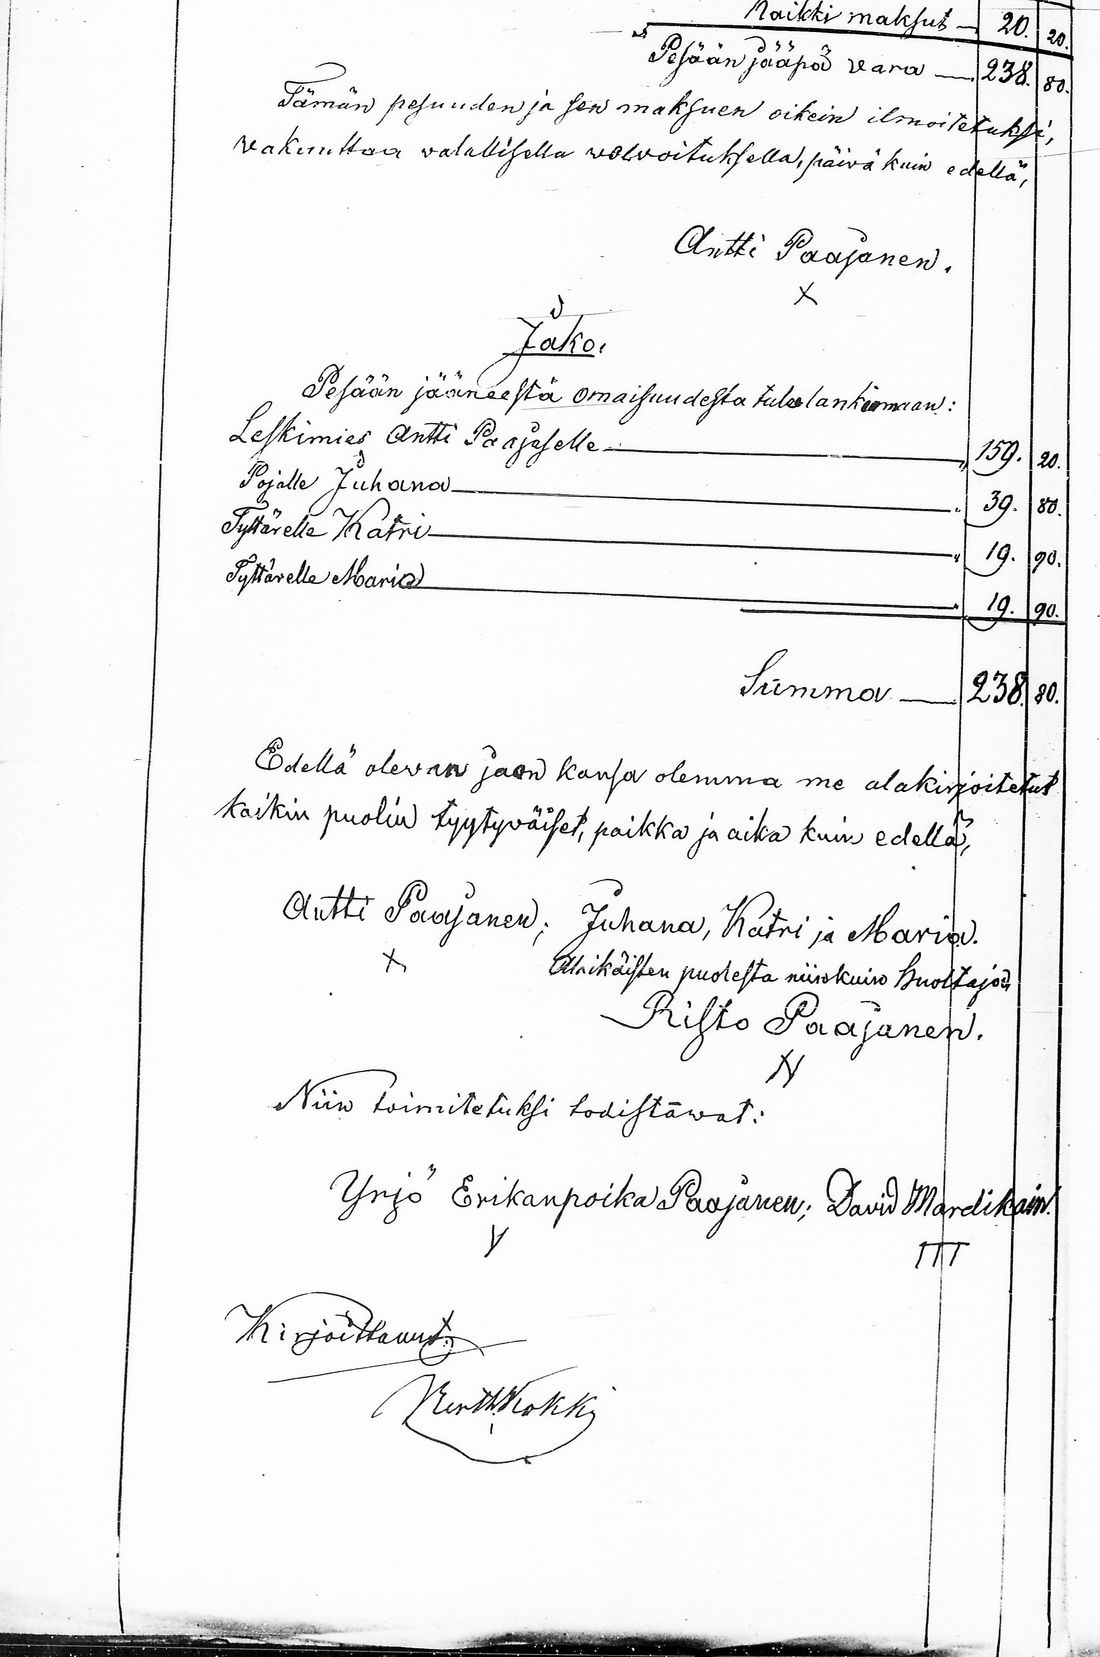 Kaikki maksut — 20. 20.
Pesään jääpä vara — 238. 80.
Tämän pesuuden ja sen maksuen oikein ilmoitetuksi,
vakuuttaa valallisella velvoituksella, päivä kuin edellä,
Antti Paajanen.
X
Jako.
Pesään jääneestä omaisuudesta tulee lankemaan:
Leskimies Antti Paajaselle — " 159. 20.
Pojalle Juhana — " 39. 80.
Tyttärelle Katri — " 19. 90.
Tyttärelle Maria — " 19. 90.
Summa — 238. 80.
Edellä olevan jaon kansa olemma me alakirjoitetut
kaikin puolin tyytyväiset, paikka ja aika kuin edellä,
Antti Paajanen; Juhana, Katri ja Maria.
X
Alaikäisten puolesta niinkuin huoltaja
Risto Paajanen.
N
Niin toimitetuksi todistavat:
Yrjö Erikanpoika Paajanen; David Mardikain.
Y III
Kirjoittanut:
Kokki